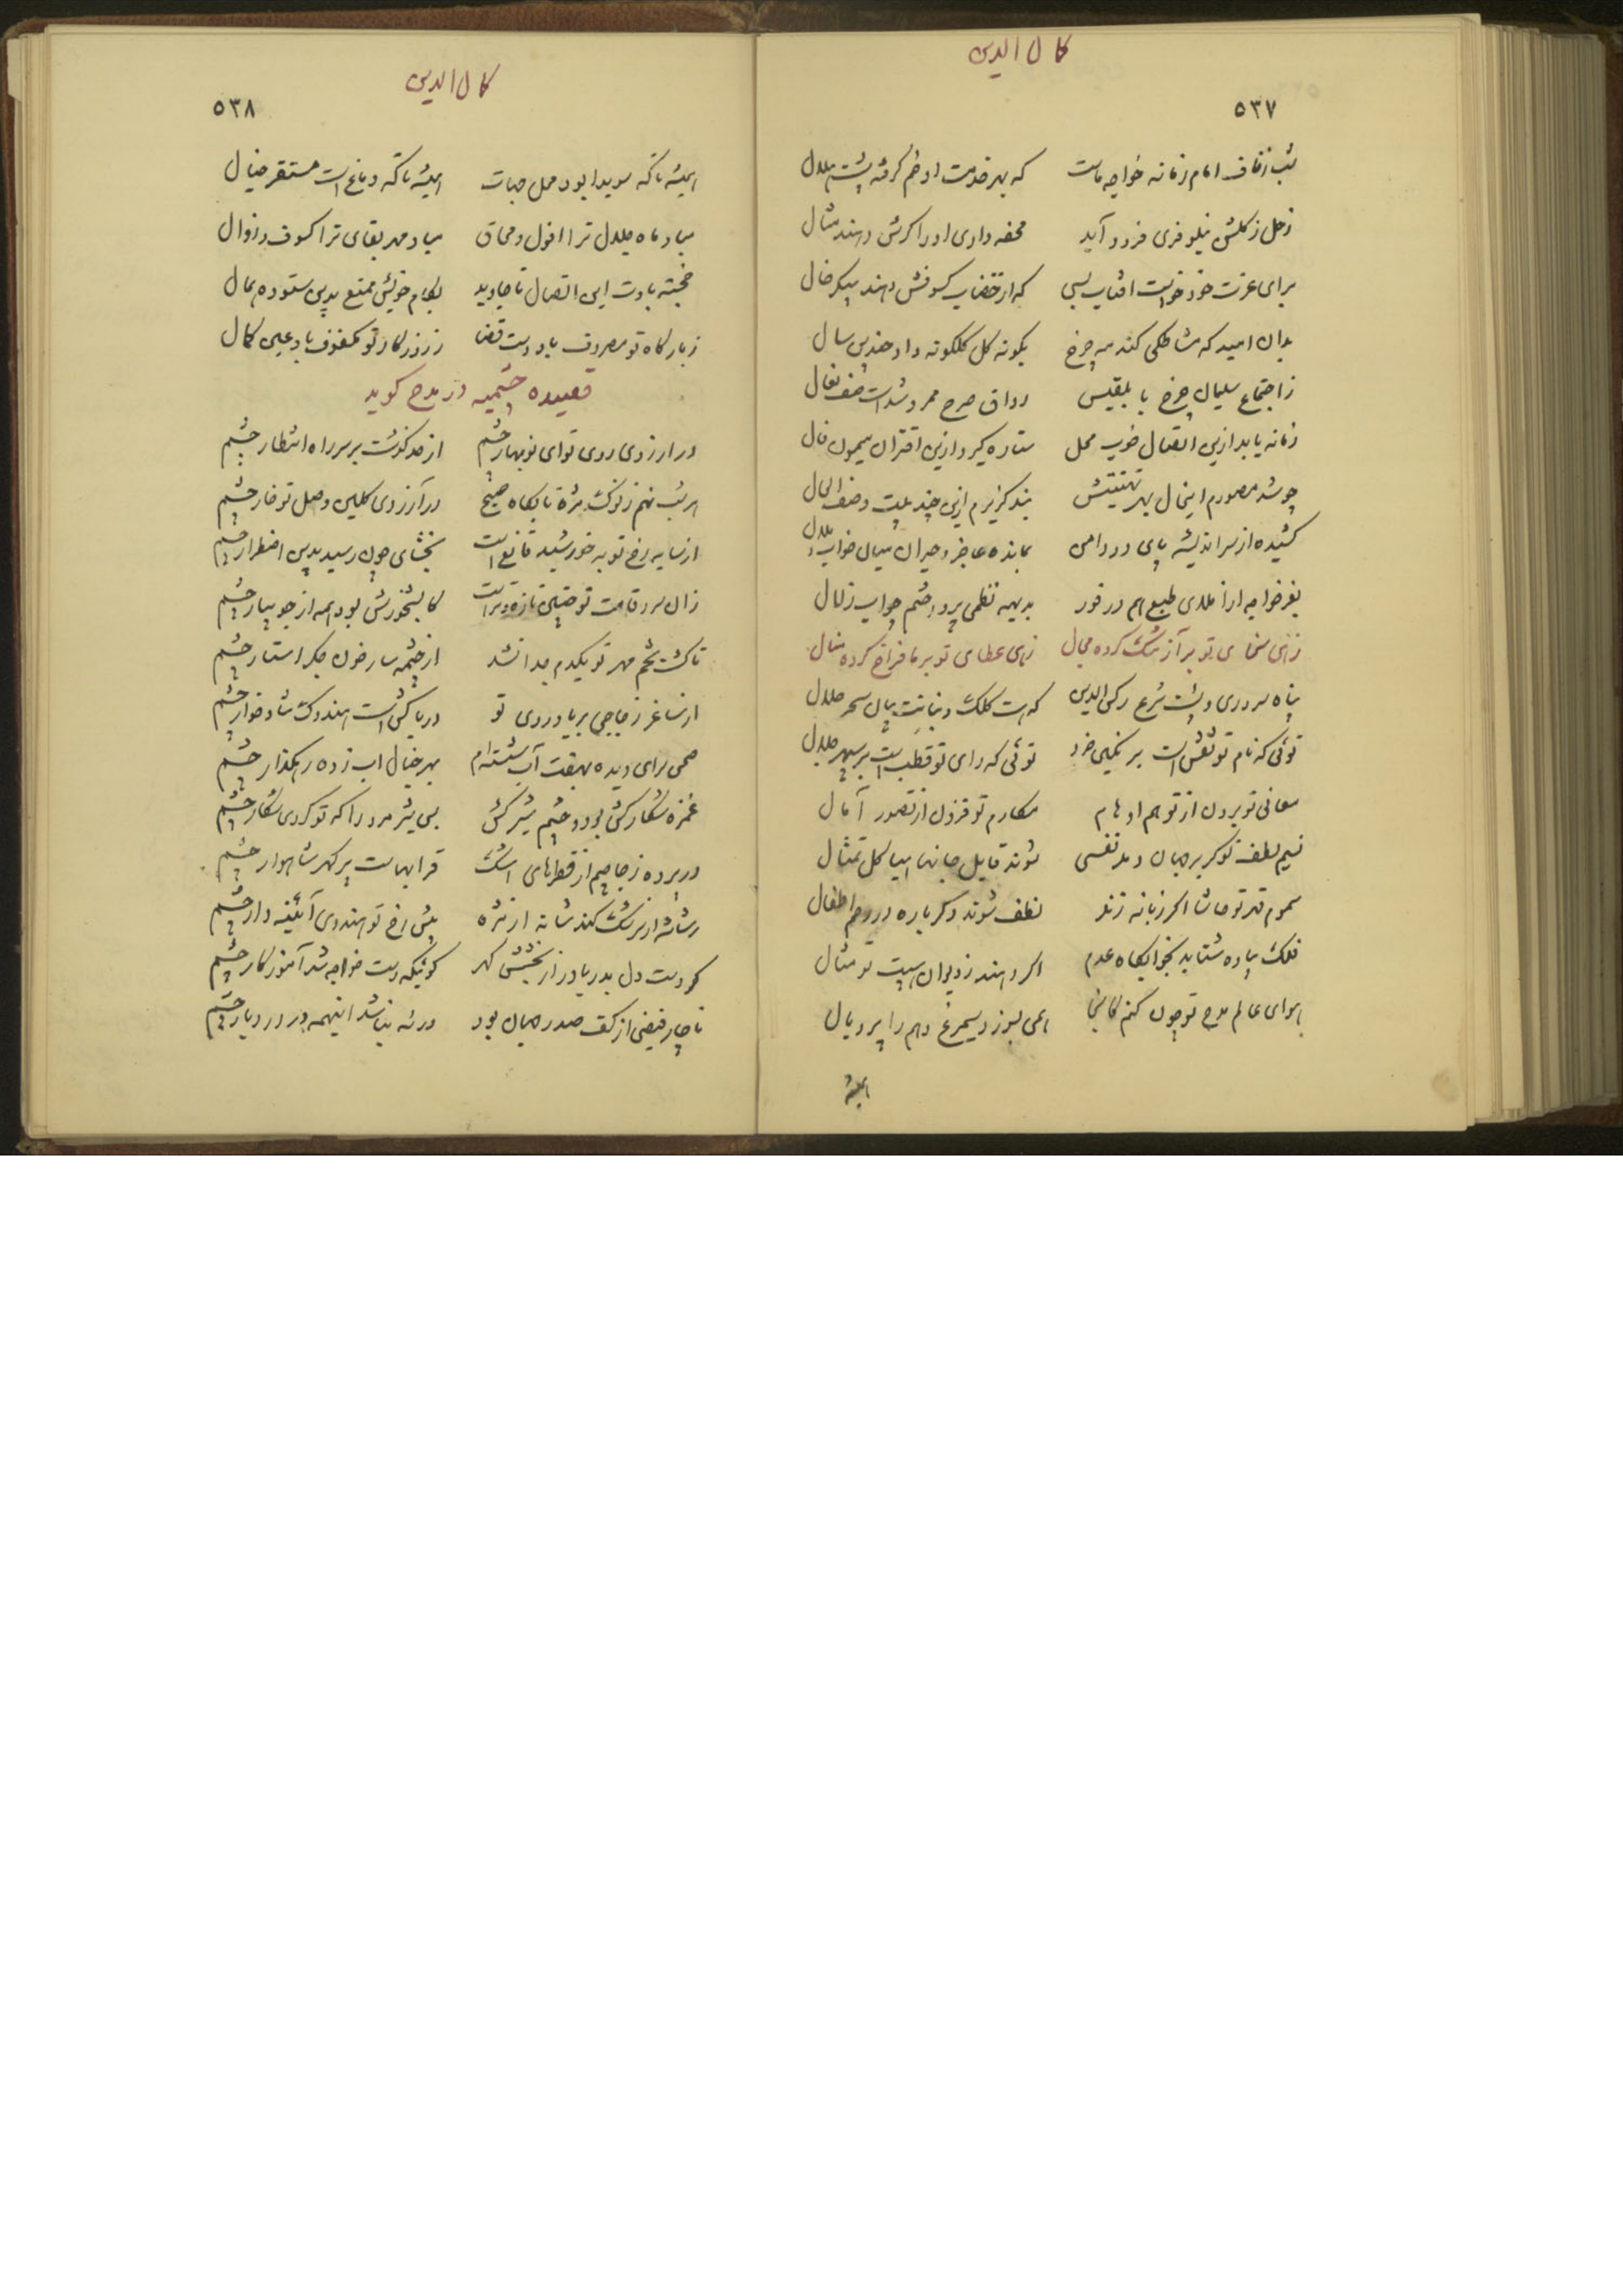 کمال الدین
۵۳۷
شب زفاف امام زمانه خواجه ماست که بهر خدمت او خم گرفته پشت هلال
زحل ز گلشن نیلوفری فرود آید محفه داری او را کرش دهند مثال
برای عزت خود خواست افتاب بسی که از خضاب کسوفش دهند پیکر خال
بدان امید که مشاطگی کند مه چرخ بگونه گل گلگونه داد چندین سال
ز اجتماع سلیمان چرخ با بلقیس رواق صرح ممرد شداست صف نعال
زمانه یابد ازین اتصال خوب محل ستاره گیرد ازین اقتران میمون فال
چو شد مصورم اینحال بهر تهنیتش بند گزیرم ازین چند بیت وصف الحال
کشیده از سر اندیشه پای در دامن بمانده عاجز و حیران میان خواب
بفر خواجه ار املای طبع هم در فور بدیهه نظمی پرداختم چو اب زلال
زهی سخای تو بر آز تنگ کرده مجال زهی عطای تو بر ما فراخ کرده منال
پناه سروری و پشت شرع رکن الدین که هست کلک و بنانت بیان سحر حلال
توئی که نام تو نقش است بر نگین خرد توئی که رای تو قطب است بر سپهر جلال
معانی تو برون از توهم اوهام مکارم تو فزون از تصور آمال
نسیم لطف تو گر بر جهان دمد نفسی شوند قابل جانها هیاکل تمثال
سموم قهر تو حاشا اگر زبانه زند نطف شوند دگرباره در رحم اطفال
فلک پیاده شتابد بخوابگاه عدم اگر دهند ز دیوان هیبت تو مثال
هوای عالم مدح تو چون کنم کانجا همی بسوزد سیمرغ وهم را پر و بال
همیشه
کمال الدین
۵۳۸
همیشه تا که سویدا بود محل حیات همیشه تا که دماغ است مستقر خیال
مباد ماه جلال ترا افول و محاق مباد مهر بقای ترا کسوف و زوال
خجسته بادت این اتصال تا جاوید بکام خویش ممتع بدین ستوده جمال
ز بارگاه تو مصروف باد دست قضا ز روزگار تو مکفوف باد عین کمال
قصیده چشمیه در مدح گوید
در ارزوی روی تو ای نوبهار چشم از حد گذشت بر سر راه انتظار چشم
هر شب نهم ز نوک مژه تا بگاه صبح در آرزوی گلبن وصل تو خار چشم
از سایه رخ تو به خورشید قانع است بخشای چون رسید بدین اضطرار چشم
زان سرو قامت تو چنین تازه و تراست کابشخورش بود همه از جویبار چشم
تا کشت تخم مهر تو یکدم جدا نشد از چشمه سار خون جگر استار چشم
از ساغر زجاجی بر یاد روی تو دریاکش است هندوک شادخوار چشم
صحن سرای دیده بهفت آب شسته‌ام بهر خیال اب زده رهگذار چشم
غمزه شکارکش بود و چشم شیرکش بس شیرمرد را که تو کردی شکار چشم
در پرده زجاجیم از قطرهای اشک قرابهاست پر گهر شاهوار چشم
رشاشه از سرشک کند شانه از مژه پیش رخ تو هندوی آئینه دار چشم
کردست دل بدریا در از بخشش گهر گوئیکه دست خواجه شد آموزگار چشم
ناچار فیضی از کف صدر جهان بود ورنه نباشد اینهمه در در دیار چشم